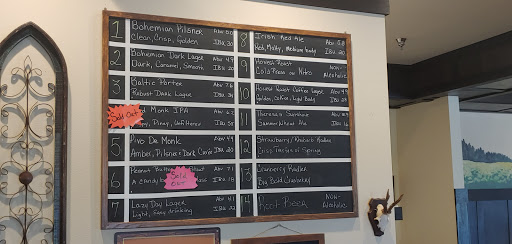 1 Bohemian Pilsner ABV 5.0
Clean, Crisp, Golden IBU 30
2 Bohemian Dark Lager ABV 4.9
Dark, Caramel, Smooth IBU 20
3 Baltic Porter ABV 7.6
Robust Dark Lager IBU 36
Sold Out
Monk IPA ABV 6.2
5 Pivo De Monk ABV 4.9
Amber, Pilsner + Dark Combo IBU 25
6 Peanut Butter ABV 7.1
A candy IBU
Sold Out
7 Lazy Day Lager ABV 4.1
Light, Easy drinking IBU
8 Irish Red Ale ABV 5.8
Red, Malty, Medium body IBU 20
9 Honest Roast Non-
Cold Press on Nitro Alcoholic
10 Honest Roast Coffee Lager ABV 4.9
Golden, Coffee, Light Body IBU
11 Theresa's Sunshine ABV
Summer Wheat Ale IBU 16
12 Strawberry/Rhubarb Radler
Crisp Tastes of Spring
13 Cranberry Radler
Big Bold Cranberry
14 Root Beer Non-
Alcoholic